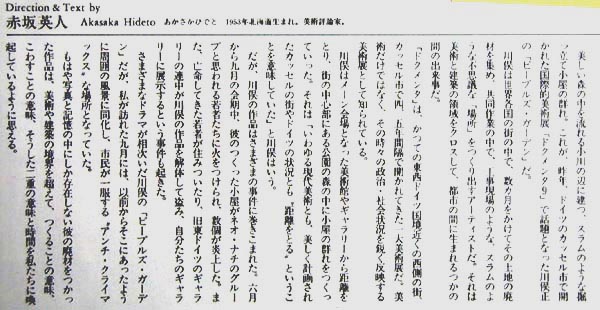 Direction & Text by
赤坂英人 Akasaka Hideto あかさかひでと 1953年北海道生まれ。美術評論家。
美しい森の中を流れる小川の辺に建つ、スラムのような掘
っ立て小屋の群れ。これが一昨年、ドイツのカッセル市で開
かれた国際的美術展「ドクメンタ9」で話題となった川俣正
の「ピープルズ・ガーデン」だ。
川俣は世界各国の街の中で、数か月をかけてその土地の廃
材を集め、共同作業の中で、工事現場のような、スラムのよ
うな「場所」をつくり出すアーティストだ。それは
美術と建築の領域をクロスして、都市の間に生まれるつかの
間の出来事だ。
「ドクメンタ」は、かつての東西ドイツ国境近くの西側の街、
カッセル市で四、五年間隔で開かれてきた一大美術展だ。美
術だけではなく、その時々の政治・社会状況を鋭く反映する
美術展として知られている。
川俣はメーン会場となった美術館やギャラリーから距離を
とり、街の中心部にある公園の森の中に小屋の群れをつくっ
ていった。それは「いわゆる現代美術とも、美しく計画され
たカッセルの街やドイツの状況とも“距離をとる”というこ
とを意味していた」と川俣はいう。
だが、川俣の作品はさまざまの事件に巻きこまれた。六月
から九月の会期中、彼のつくった小屋がネオ・ナチのグルー
プと思われる若者たちに火をつけられ、数個が炎上した。ま
た、亡命してきた若者が住みついたり、旧東ドイツのギャラ
リーの連中が川俣の作品を解体して盗み、自分たちのギャラ
リーに展示するという事件も起きた。
さまざまなドラマが相次いだ川俣の「ピープルズ・ガーデ
ン」だが、私が訪れた九月には、以前からそこにあったよう
に周囲の風景に同化し、市民が一服する“アンチ・クライマ
ックス”な場所となっていた。
もはや写真と記憶の中にしか存在しない彼の廃材をつかっ
た作品は、美術や建築の境界を超えて、つくることの意味、
こわすことの意味、そうした二重の意味と時間を私たちに喚
起しているように思える。